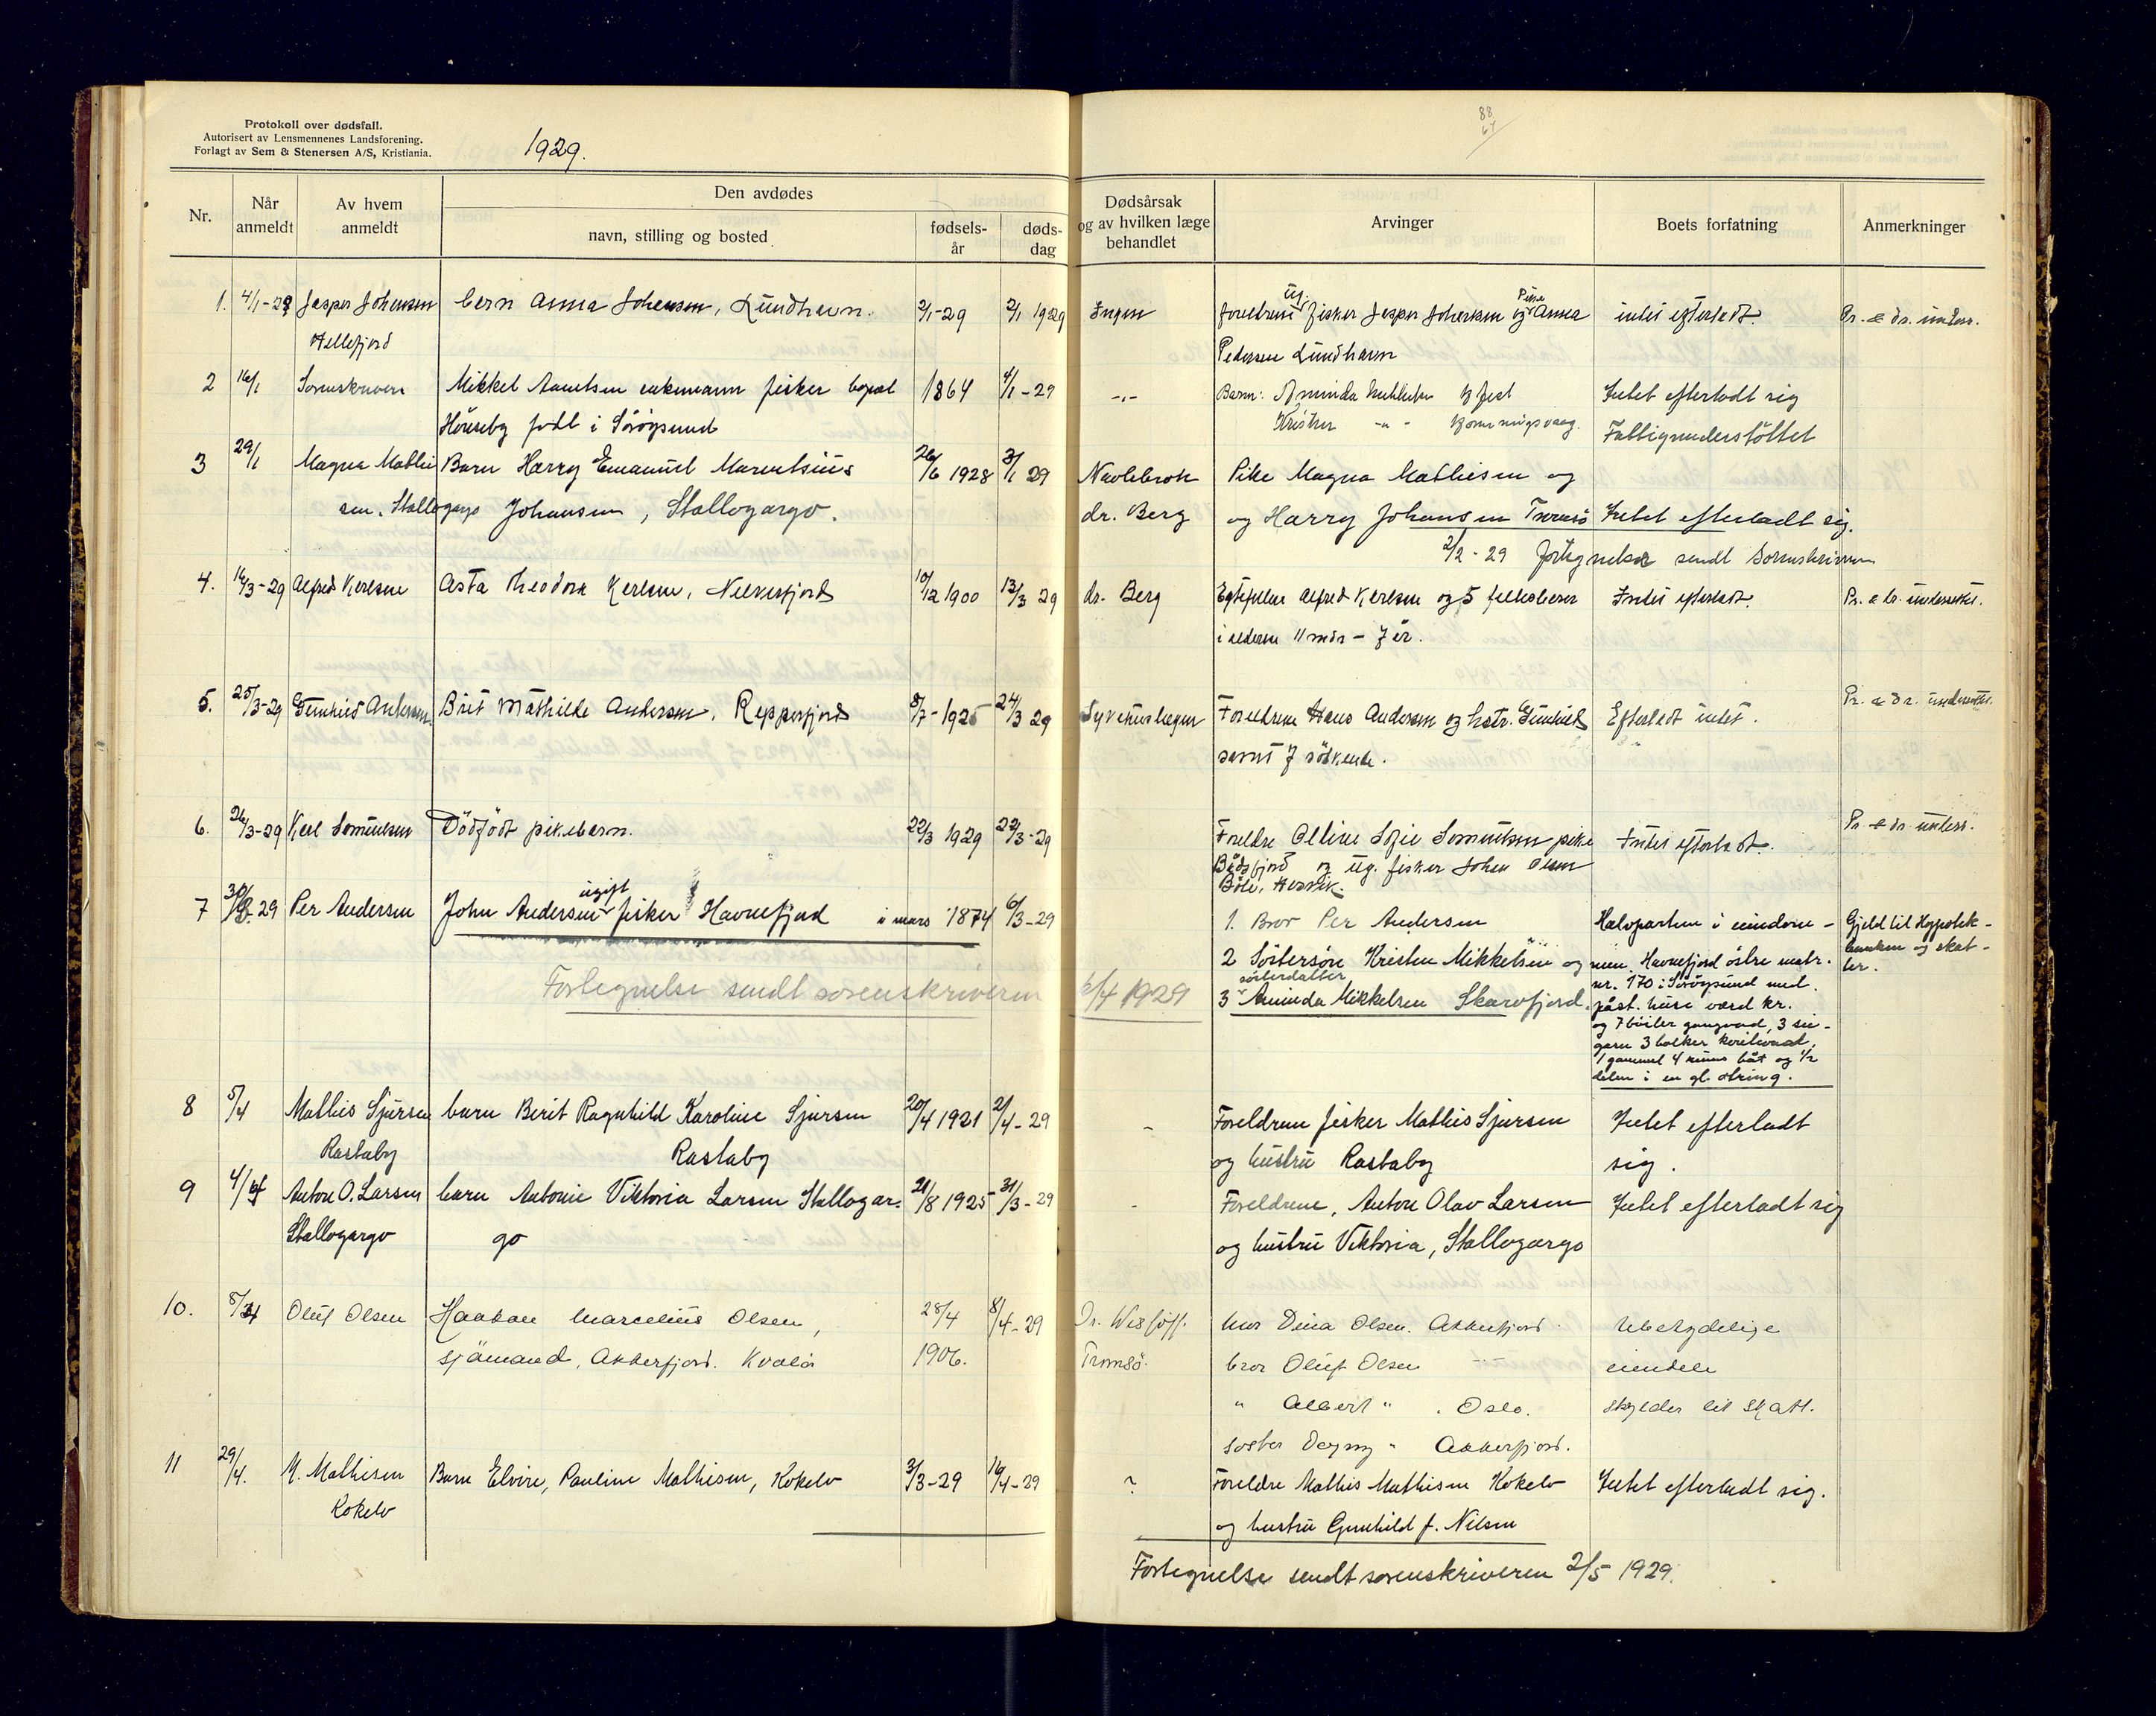 Protokoll over dødsfall.
Autorisert av Lensmennenes Landsforening.
Forlagt av Sem & Stenersen A/S, Kristiania.
1929.
88
64
Nr.
Når anmeldt
Av hvem anmeldt
Den avdødes
navn, stilling og bosted
fødsels-år
døds-dag
Dødsårsak og av hvilken læge behandlet
Arvinger
Boets forfatning
Anmerkninger
1. 4/1-29 Jesper Johansen barn Anna Johansen, Lundhavn. 2/1-29 2/1 1929 Ingen foreldrene ug. fisker Jesper Johansen og Pike Anna intet efterladt. Pr. & dr. underr.
Hellefjord Pedersen Lundhavn
2 16/1 Sorenskriveren Mikkel enkemann fisker bopæl 1864 4/1-29 -"- Barn: Aminda Mikkelsen gift Intet efterladt sig
født i Söröysund Krister -"- Fattigunderstöttet
3 29/1 Magna Mathi Barn Harry Emanuel Marentsius 26/6 1928 3/1 29 Navlebrok Pike Magna Mathisen og
sen, Stallogargo Johansen, Stallogargo. dr. Berg og Harry Johansen Tromsö Intet efterladt sig.
2/2-29 fortegnelse sendt Sorenskriveren
4. 16/3-29 Alfred Karlsen Asta Theodora Karlsen, 10/12 1900 13/3 29 dr. Berg Egtefellen Alfred Karlsen og 5 fellesbarn Intet efterladt. Pr. & dr. underrettet.
i alderen 11 mdr - 7 år.
5. 25/3-29 Gunhild Andersen Brit Mathilde Andersen, Repparfjord 8/7-1925 24/3 29 Foreldrene Hans Andersen og hstr. Gunhild Efterladt intet. Pr. & dr. underrettet.
samt 7 södskende.
6. 26/3-29 Karl Samuelsen Dödfödt pikebarn. 22/3 1929 22/3-29 Foreldre Oline Sofie Samuelsen pike Intet efterladt. Pr. & dr. underr.
og ug. fisker Johan Olsen
7 30/3-29 Per Andersen John Andersen ugift fisker Havnefjord i mars 1874 6/3-29 1. Bror Per Andersen Halvparten i eiendom- Gjeld til Hypotek-
2 Söstersön Kristen Mikkelsen og men, Havnefjord östre matr. banken og skat-
ter.
Fortegnelse sendt sorenskriveren 6/4 1929
sösterdatter
3 Aminda Mikkelsen Skarvfjord. nr. 170 i Söröysund med
påst. huse værd kr.
og 7 böiler gangvad, 3 sei-
garn 3 bolker
1 gammel 4 rums båt og 1/2
delen i en gl. otring.
8 5/4 Mathis Sjursen barn Berit Ragnhild Karoline Sjursen 20/4 1921 2/4-29 - Foreldrene fisker Mathis Sjursen Intet efterladt
Rastaby Rastaby og hustru Rastaby sig.
9 4/4 Anton O. Larsen barn Antonie Viktoria Larsen Stallogar- 21/8 1925 31/3-29 - Foreldrene, Anton Olav Larsen Intet efterladt sig
Stallogargo go og hustru Viktoria, Stallogargo
10. 8/4 Oluf Olsen Haakon Marcelius Olsen, 28/4 8/4-29 Mor Dina Olsen. Akkerfjord. Ubetydelige
sjömand, Akkerfjord. Kvalö 1906. Tromsö. bror Oluf Olsen -"- eiendele
" Albert " . Oslo. skylder lit skatt.
söster Dagny " Akkerfjord.
11 29/4. M. Mathisen Barn Elvire, Pauline Mathisen, Kokelv 3/3-29 16/4-29 ? Foreldre Mathis Mathisen Kokelv Intet efterladt sig.
Kokelv og hustru Gunhild f. Nilsen
Fortegnelse sendt sorenskriveren 2/5 1929.